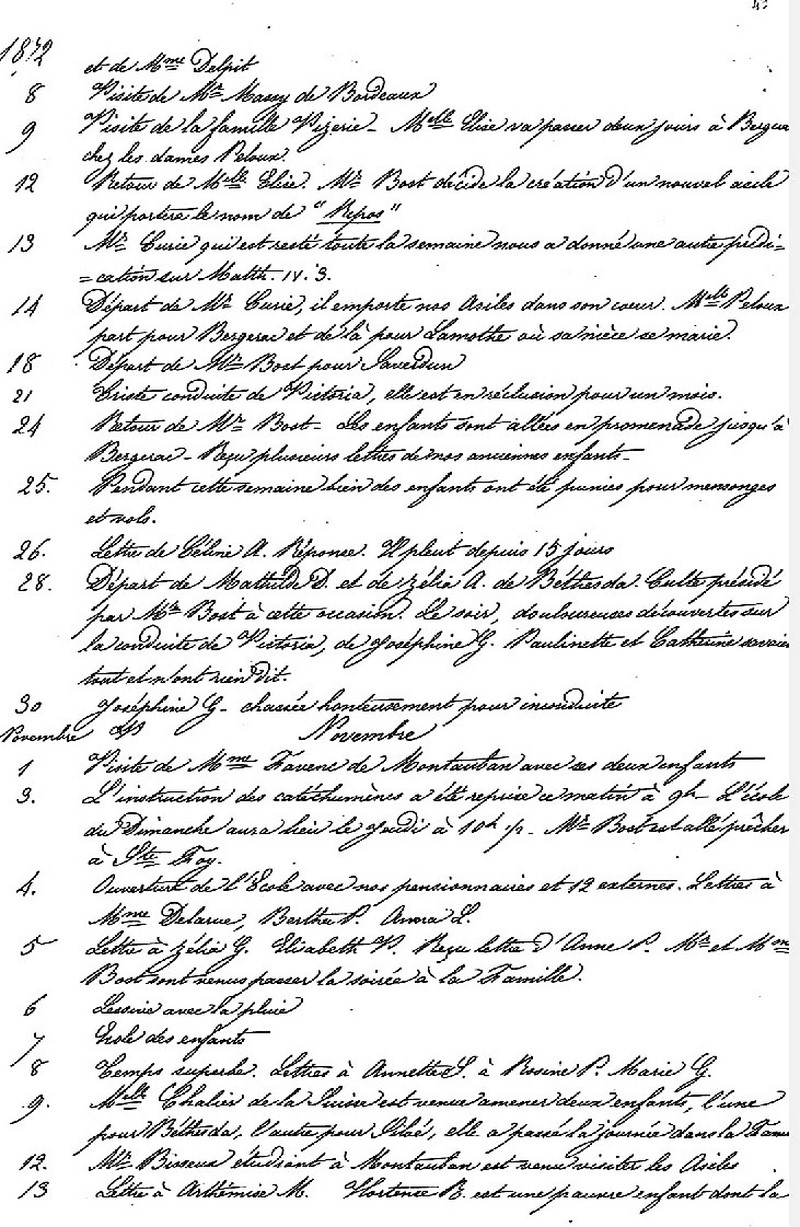 1872
et de Mme Delpit
8 Visite de Mr Massy de Bordeaux
9 Visite de la famille Vizerie - Melle Elise va passer deux jours à Bergerac
chez les dames Peloux.
12 Retour de Melle Elise. Mr Bost décide la création d'un nouvel asile
qui portera le nom de "Repos"
13 Mr Curie qui est resté toute la semaine nous a donné une autre prédi=
=cation sur Matth. IV. 3.
14 Départ de Mr Curie, il emporte nos Asiles dans son coeur. Melle Peloux
part pour Bergerac et de là pour Lamothe où sa nièce se marie.
18 Départ de Mr Bost pour Saverdun
21 Triste conduite de Victoria, elle est en réclusion pour un mois.
24 Retour de Mr Bost - Les enfants sont allées en promenade jusqu'à
Bergerac - Reçu plusieurs lettres de nos anciennes enfants -
25. Pendant cette semaine bien des enfants ont été punies pour mensonges
et vols.
26. Lettre de Céline A. Réponse. Il pleut depuis 15 jours
28. Départ de Mathilde D. et de Zélia A. de Béthesda. Culte présidé
par Mr Bost à cette occasion. Le soir, douloureuses découvertes sur
la conduite de Victoria, de Joséphine G. Paulinette et Catherine savaient
tout et n'ont rien dit.
30 Joséphine G. chassée honteusement pour inconduite
Novembre Novembre
1 Visite de Mme Favenc de Montauban avec ses deux enfants
3. L'instruction des catéchumènes a été reprise ce matin à 9h - L'école
du Dimanche aura lieu le Jeudi à 10h ½ - Mr Bost est allé prêcher
à Ste Foy.
4. Ouverture de l'Ecole avec nos pensionnaires et 12 externes. Lettres à
Mme Delarue, Berthe P. Anna L.
5 Lettre à Zélia G. Elisabeth V. Reçu lettre d'Anne P. Mr et Mme
Bost sont venus passer la soirée à la Famille.
6 Lessive avec la pluie
7 Ecole des enfants
8 Temps superbe. Lettres à Annette S. à Rosine P. Marie G.
9. Melle Chalier de la Suisse est venue amener deux enfants, l'une
pour Béthesda, l'autre pour Siloé, elle a passé la journée dans la Fam
12. Mr Bisseux étudiant à Montauban est venu visiter les Asiles
13 Lettre à Arthémise M. Hortence R. est une pauvre enfant dont la